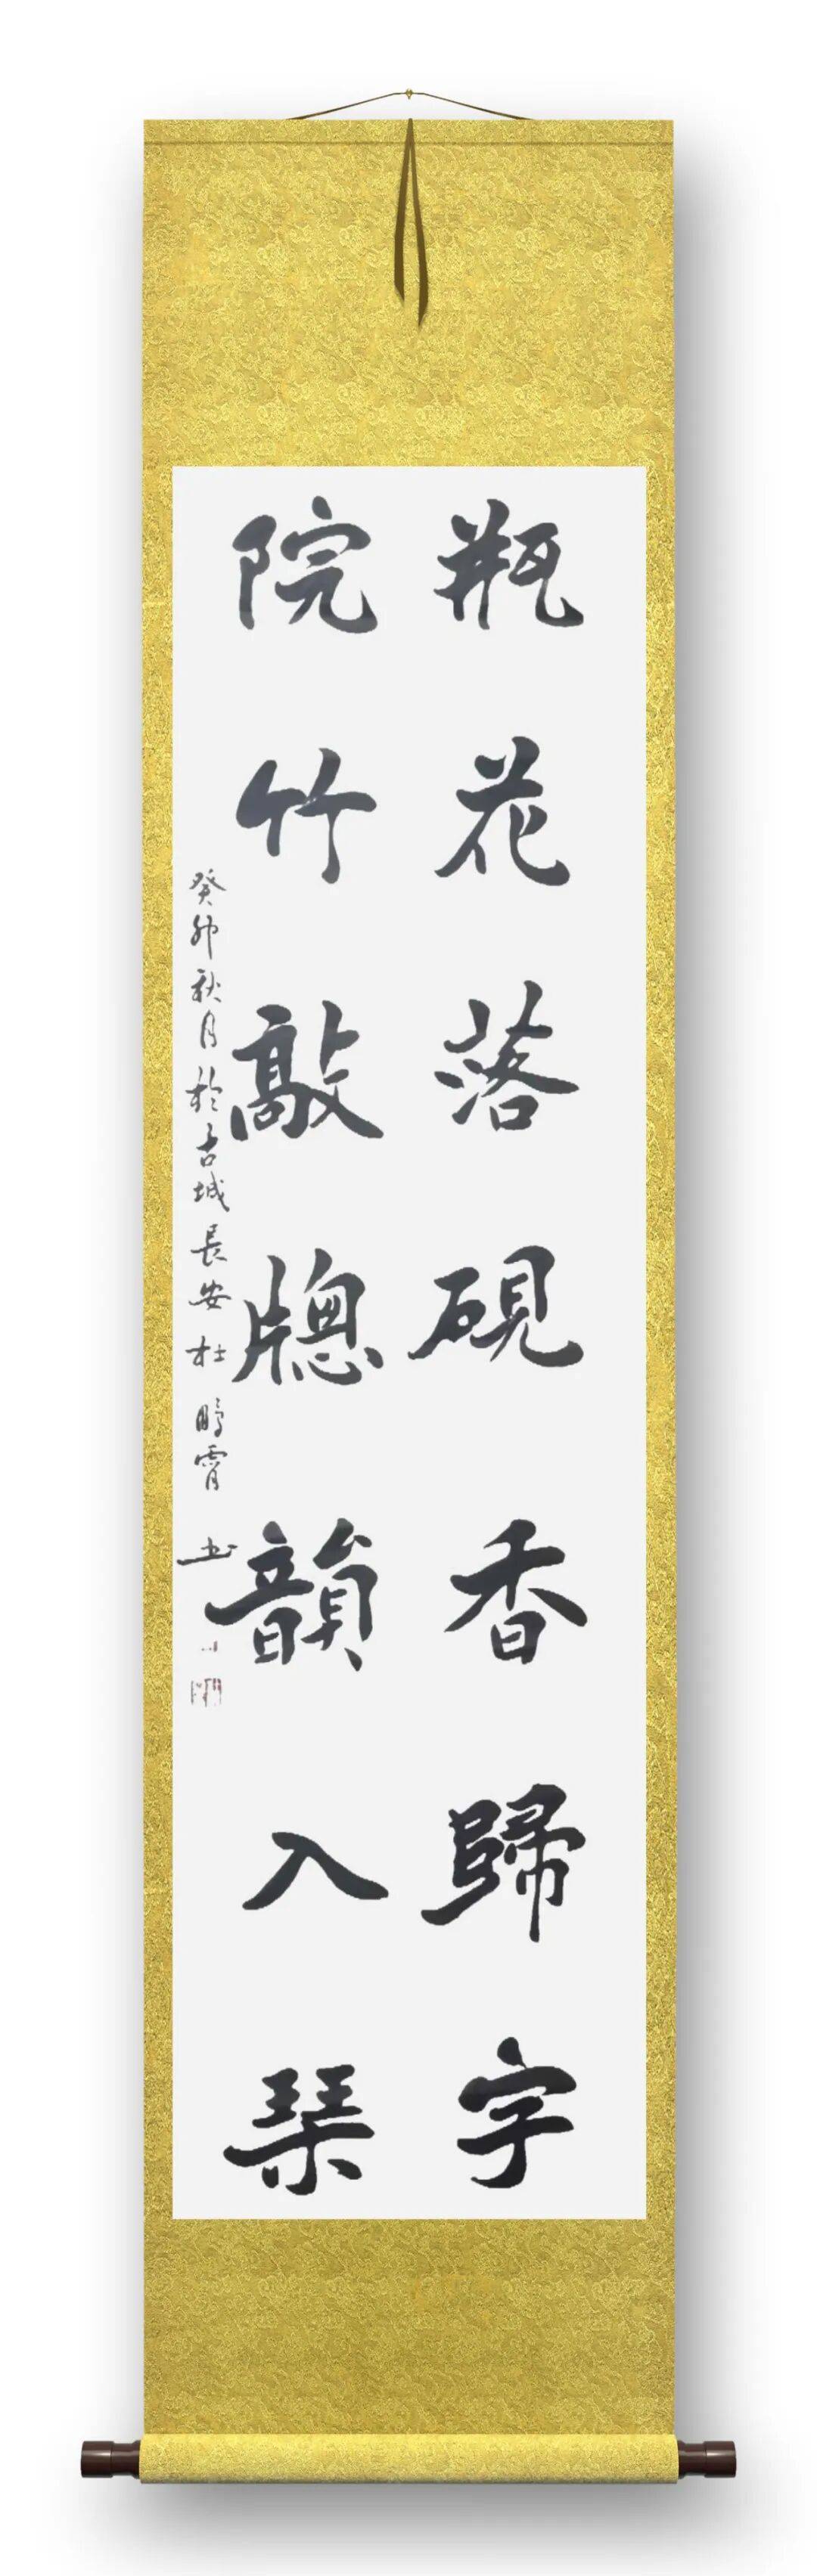 瓶花落硯香歸字
院竹敲牕韻入琹
癸卯秋月於古城長安杜鵬霄書